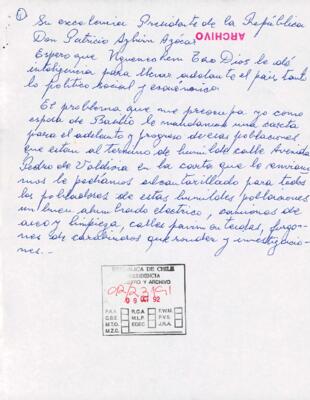 1
Su excelencia Presidente de la República
Don Patricio Aylwin Azócar
ARCHIVO
Espero que Nguenechen Tao Dios le dé
inteligencia para llevar adelante el país tanto
lo político social y económico.
El problema que me preocupa yo como
esposa de Basilio le mandamos una carta
para el adelanto y progreso de esas poblaciones
que están al termino de humilde calle Avenida
Pedro de Valdivia en la carta que le enviamos
mos le pedíamos alcantarillado para todos
los pobladores de estas humildes poblaciones
un buen alumbrado electrico, camiones de
aseo y limpieza, calles pavimentadas, furgo-
nes de carabineros que ronden y investigacio-
nes.-
REPUBLICA DE CHILE
PRESIDENCIA
REGISTRO Y ARCHIVO
09 OCT 92
P.A.A. R.C.A. F.W.M.
C.B.E. M.L.P. P.V.S.
M.T.O. EDEC J.R.A.
M.Z.C.